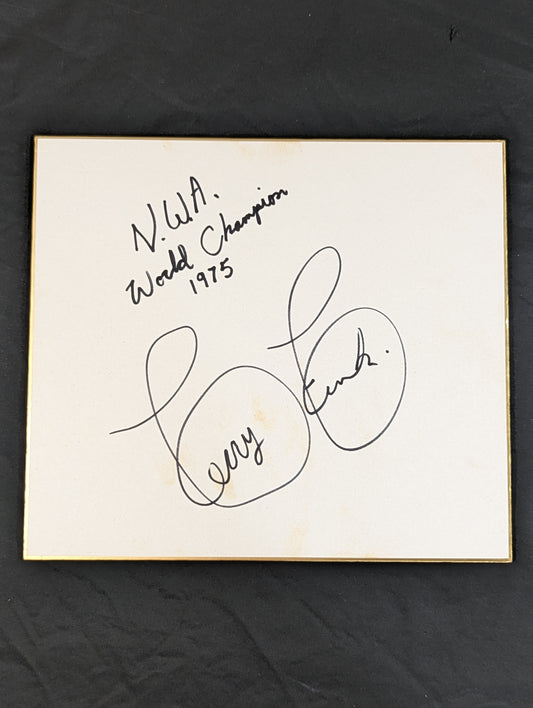 N.W.A.
World Champion
1975
Terry Funk.